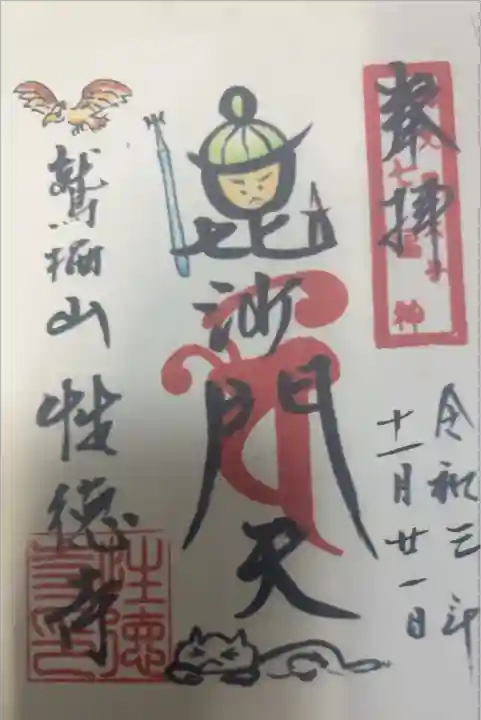 奉拝
七 神
令和三年
十一月廿一日
毘沙門天
鷲栖山 性徳寺
性徳寺